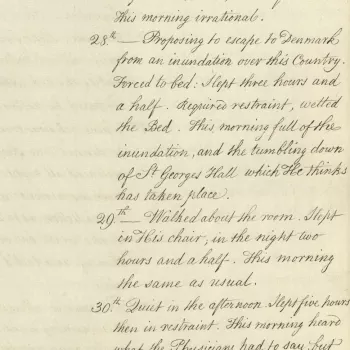 this morning irrational.
28.th — Proposing to escape to Denmark
from an inundation over this Country.
Forced to bed: Slept three hours and
a half. Required restraint, wetted
the Bed. This morning full of the
inundation, and the tumbling down
of St Georges Hall which He thinks
has taken place.
29.th — Walked about the room. Slept
in His chair, in the night two
hours and a half. This morning
the same as usual.
30.th Quiet in the afternoon. Slept five hours
then in restraint. This morning heard
what the Physicians had to say, but